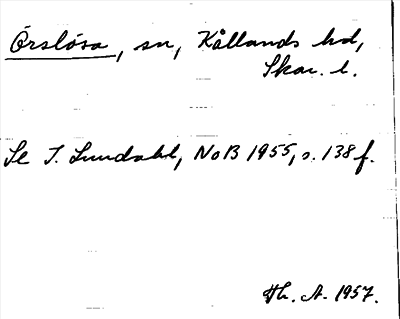 Örslösa, sn, Kållands hd,
Skar. l.
Se I. Lundahl, NoB 1955, s. 138 f.
Th. A. 1957.